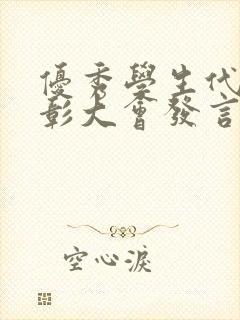 優秀學生代
彰大會發言
空心淚